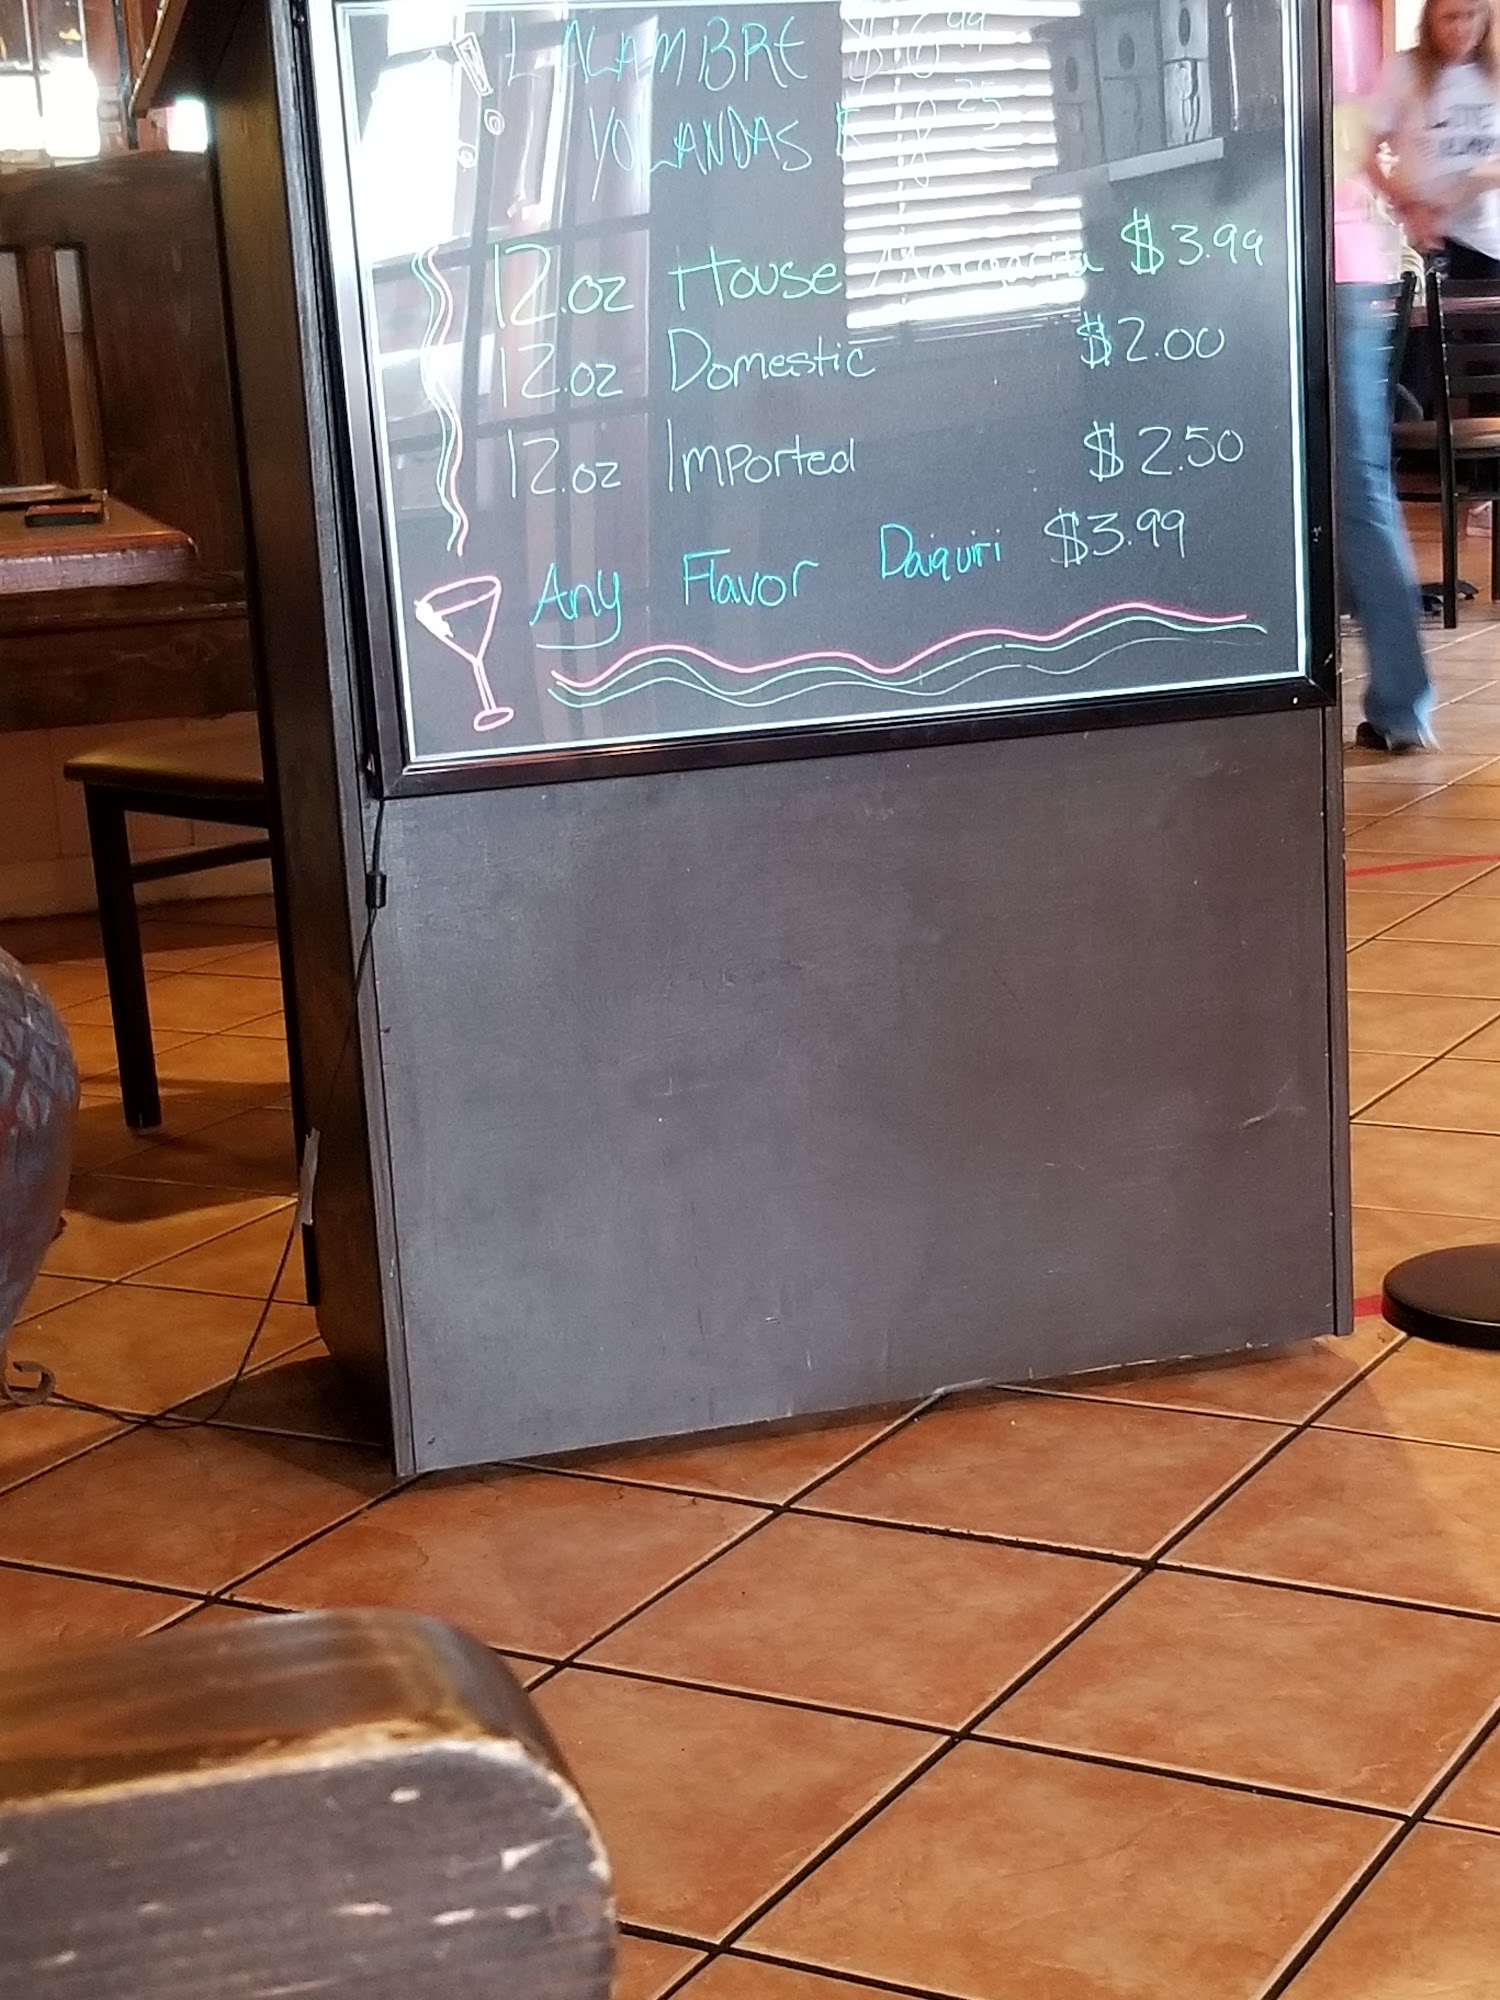 ALAMBRE $6.99
YOLANDAS
12.oz House Margarita $3.99
12.oz Domestic $2.00
12.oz Imported $2.50
Any Flavor Daiquiri $3.99